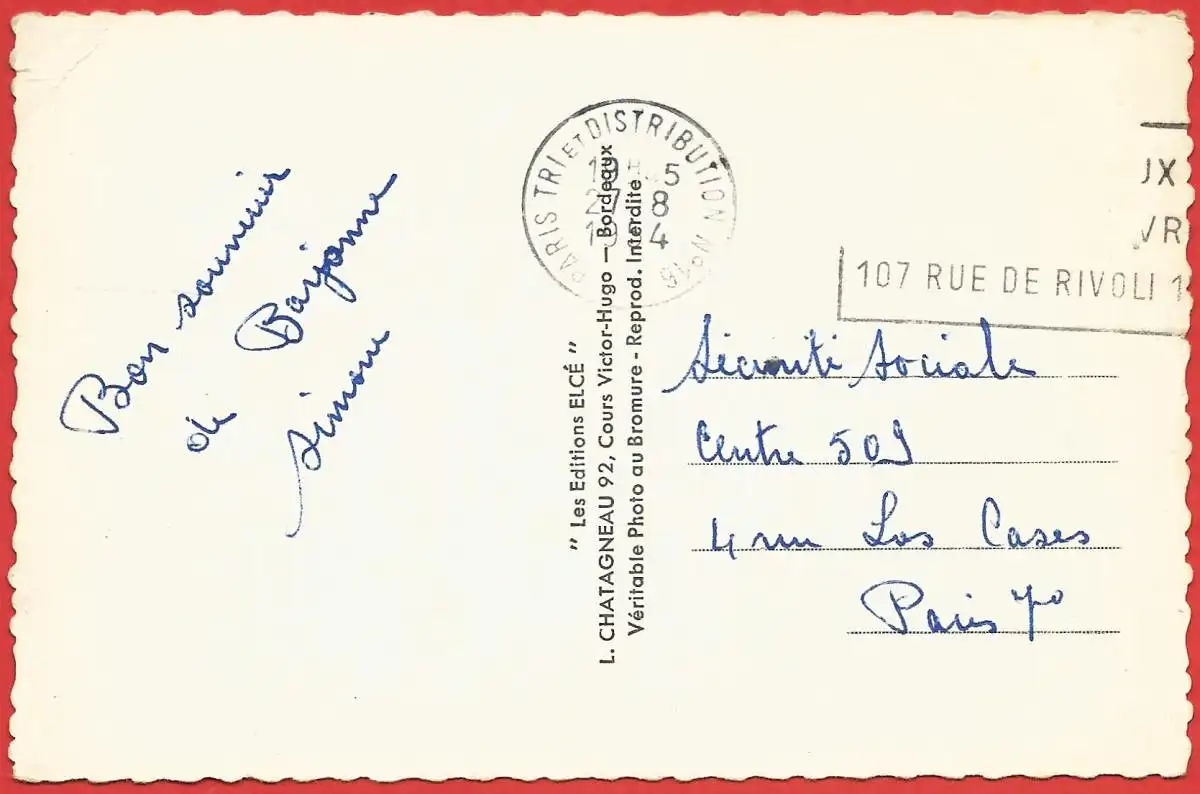 Bon souvenir
de Bayonne
Simone
" Les Editions ELCÉ "
L. CHATAGNEAU 92, Cours Victor-Hugo — Bordeaux
Véritable Photo au Bromure - Reprod. Interdite
PARIS TRI ET DISTRIBUTION No 18
27 8
UX
VR
107 RUE DE RIVOLI 1
Sécurité Sociale
Centre 509
4 rue Las Cases
Paris 7o